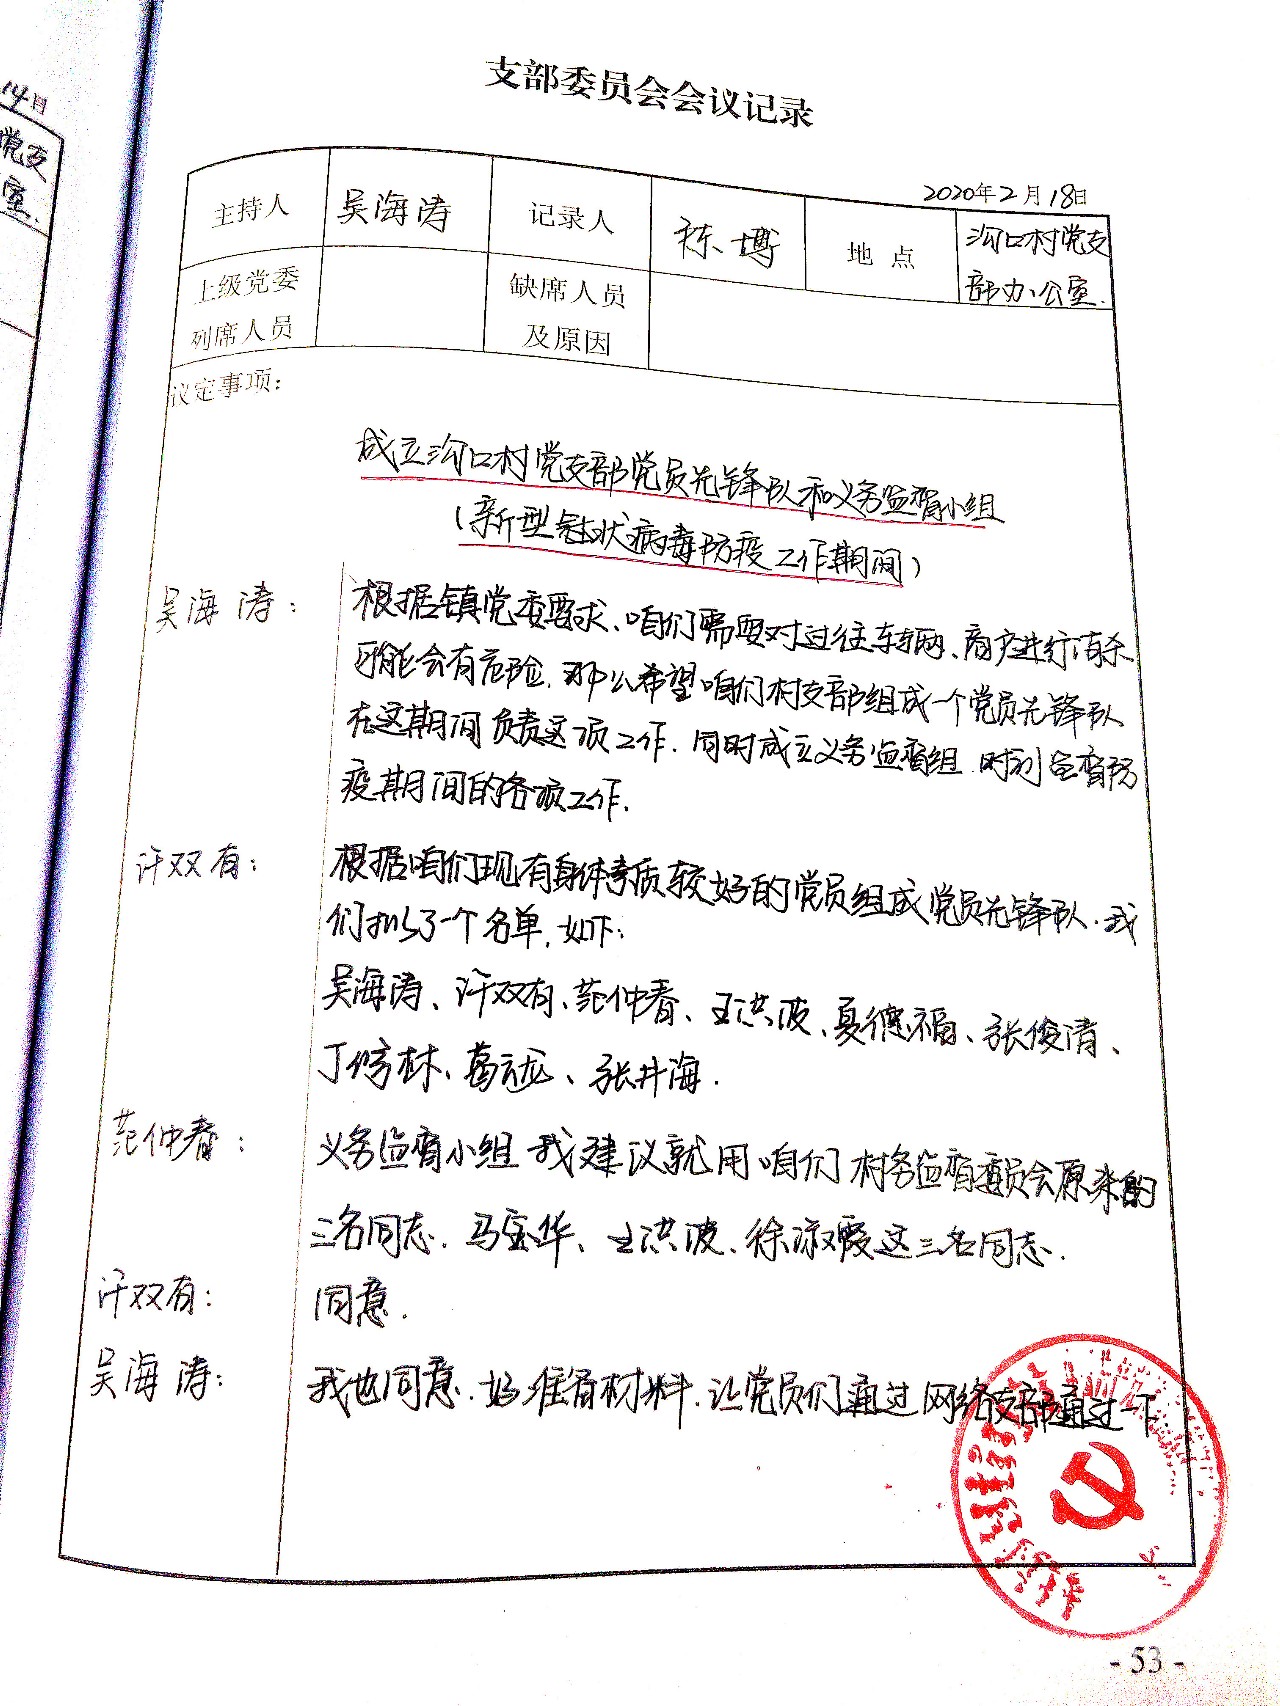 14日
党支
室.
支部委员会会议记录
2020年2月18日
主持人 吴海涛 记录人 栋博 地点 沟口村党支
部办公室.
上级党委
列席人员
缺席人员
及原因
议定事项:
成立沟口村党支部党员先锋队和义务监督小组
(新型冠状病毒防疫工作期间)
吴海涛: 根据镇党委要求、咱们需要对过往车辆、商户进行消杀
可能会有危险.那么希望咱们村支部组成一个党员先锋队
在这期间负责这项工作.同时成立义务监督组.时刻监督防
疫期间的各项工作.
许双有: 根据咱们现有身体素质较好的党员组成党员先锋队.我
们拟了一个名单.如下:
吴海涛、许双有、范仲春、王洪波、夏德福、张俊清、
丁修林、葛云龙、张井海.
范仲春: 义务监督小组我建议就用咱们村务监督委员会原来的
三名同志.马宝华、王洪波、徐淑霞这三名同志.
许双有: 同意.
吴海涛: 我也同意.好准备材料.让党员们通过网络支部通过一下
- 53 -